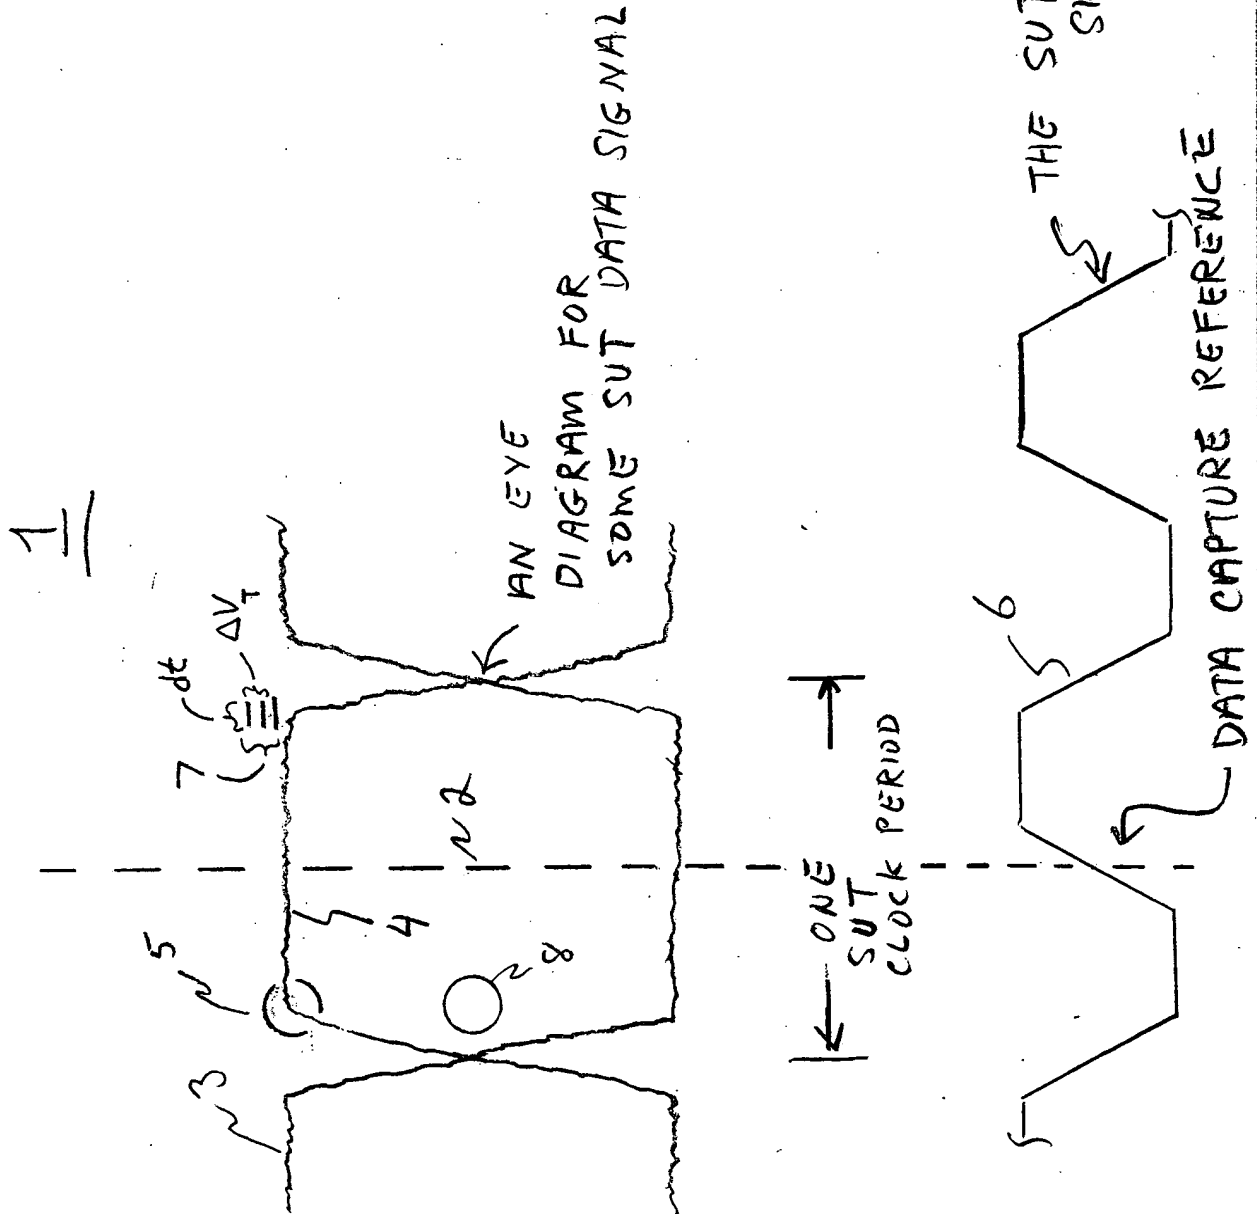 1
dt
ΔV_T
7
5
3
4
2
8
AN EYE
DIAGRAM FOR
SOME SUT DATA SIGNAL
ONE
SUT
CLOCK PERIOD
6
THE SUT
DATA CAPTURE REFERENCE